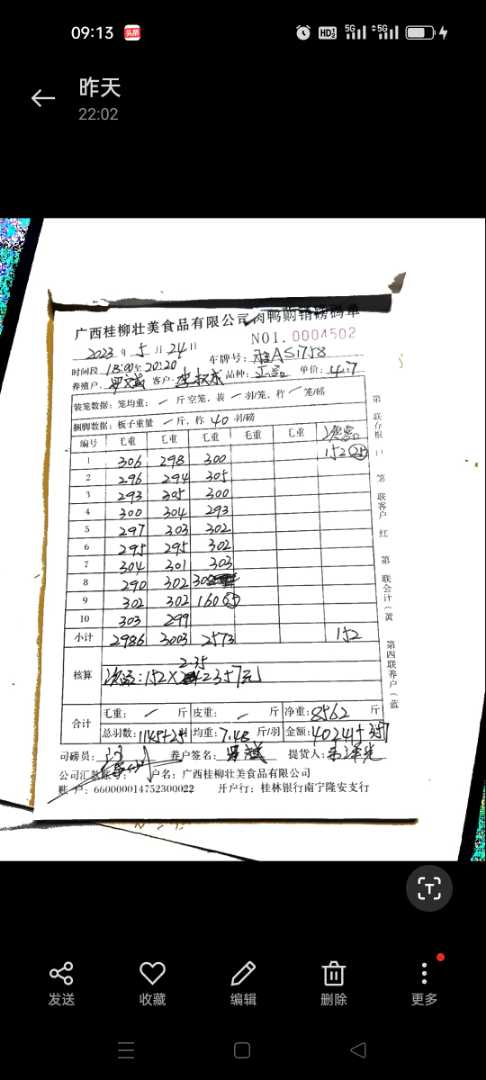 09:13
昨天
22:02
广西桂柳壮美食品有限公司肉鸭购销磅码单
NO1.0004502
2023年5月24日 车牌号:
时间段 18:00至20:20
养殖户: 客户: 品种:正品 单价:4.7
装笼数据:笼均重:一斤空笼,装一羽/笼,秤一笼/磅
捆脚数据:板子重量一斤,称40羽/磅
编号 毛重 毛重 毛重 毛重 毛重 次品
1 306 298 300 152 25
2 296 294 305
3 293 305 300
4 300 304 293
5 297 303 302
6 295 295 302
7 304 301 303
8 290 302
9 302 302 160
10 303 299
小计 2986 3003 2573 152
核算 次品:152×2.35 357元
合计 毛重:一斤 皮重:一斤 净重:8562斤
总羽数:1145+25 均重:7.48斤/羽 金额:40241+357
司磅员: 养户签名: 提货人:
公司汇款账号: 户名:广西桂柳壮美食品有限公司
账户:660000014752300022 开户行:桂林银行南宁隆安支行
第一联存根
第二联客户(红)
第三联会计(黄)
第四联养户(蓝)
发送 收藏 编辑 删除 更多